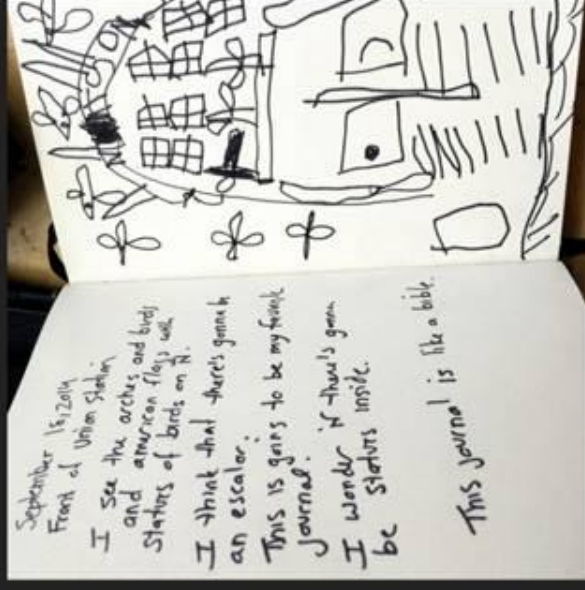 September 18, 2014
Front of Union Station
I see the arches and birds
and american flags with
staturs of birds on it.
I think that there's gonna b
an escalor.
This is going to be my favorit
journal.
I wonder if there's gonna
be staturs inside.
This journal is like a bible.